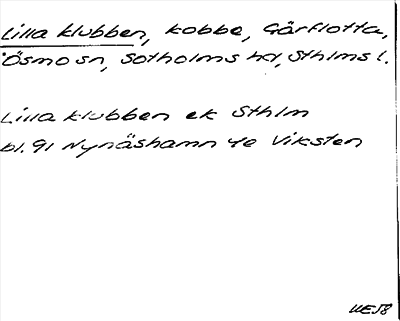 Lilla klubben, kobbe, Gårflotta,
Ösmo sn, Sotholms hd, Sthlms l.
Lilla klubben ek Sthlm
bl. 91 Nynäshamn 4e Viksten
WE58